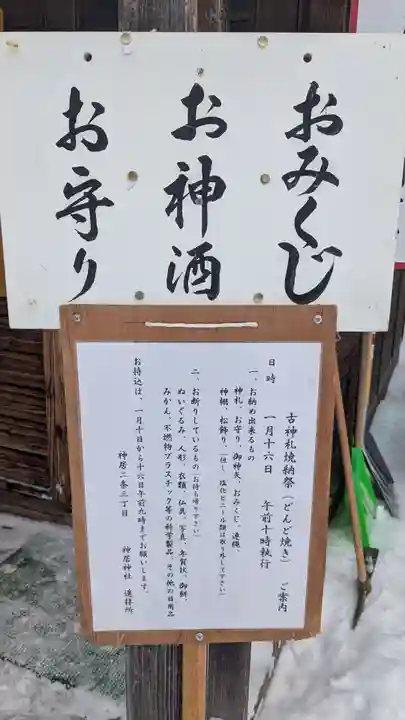 おみくじ
お神酒
お守り
古神札焼納祭（どんど焼き） ご案内
日時 一月十六日 午前十時執行
一、お納め出来るもの
神札、お守り、御神矢、おみくじ、連縄、
神棚、松飾り、（但し、塩化ビニール類は取り外して下さい）
二、お断りしているもの（お持ち帰り下さい）
ぬいぐるみ、人形、衣類、仏具、写真、年賀状、御餅、
みかん、不燃物プラスチック等の科学製品、その他の日用品
お持込は、一月十日から十六日午前九時までお願いします。
神居二条三丁目
神居神社 遥拝所